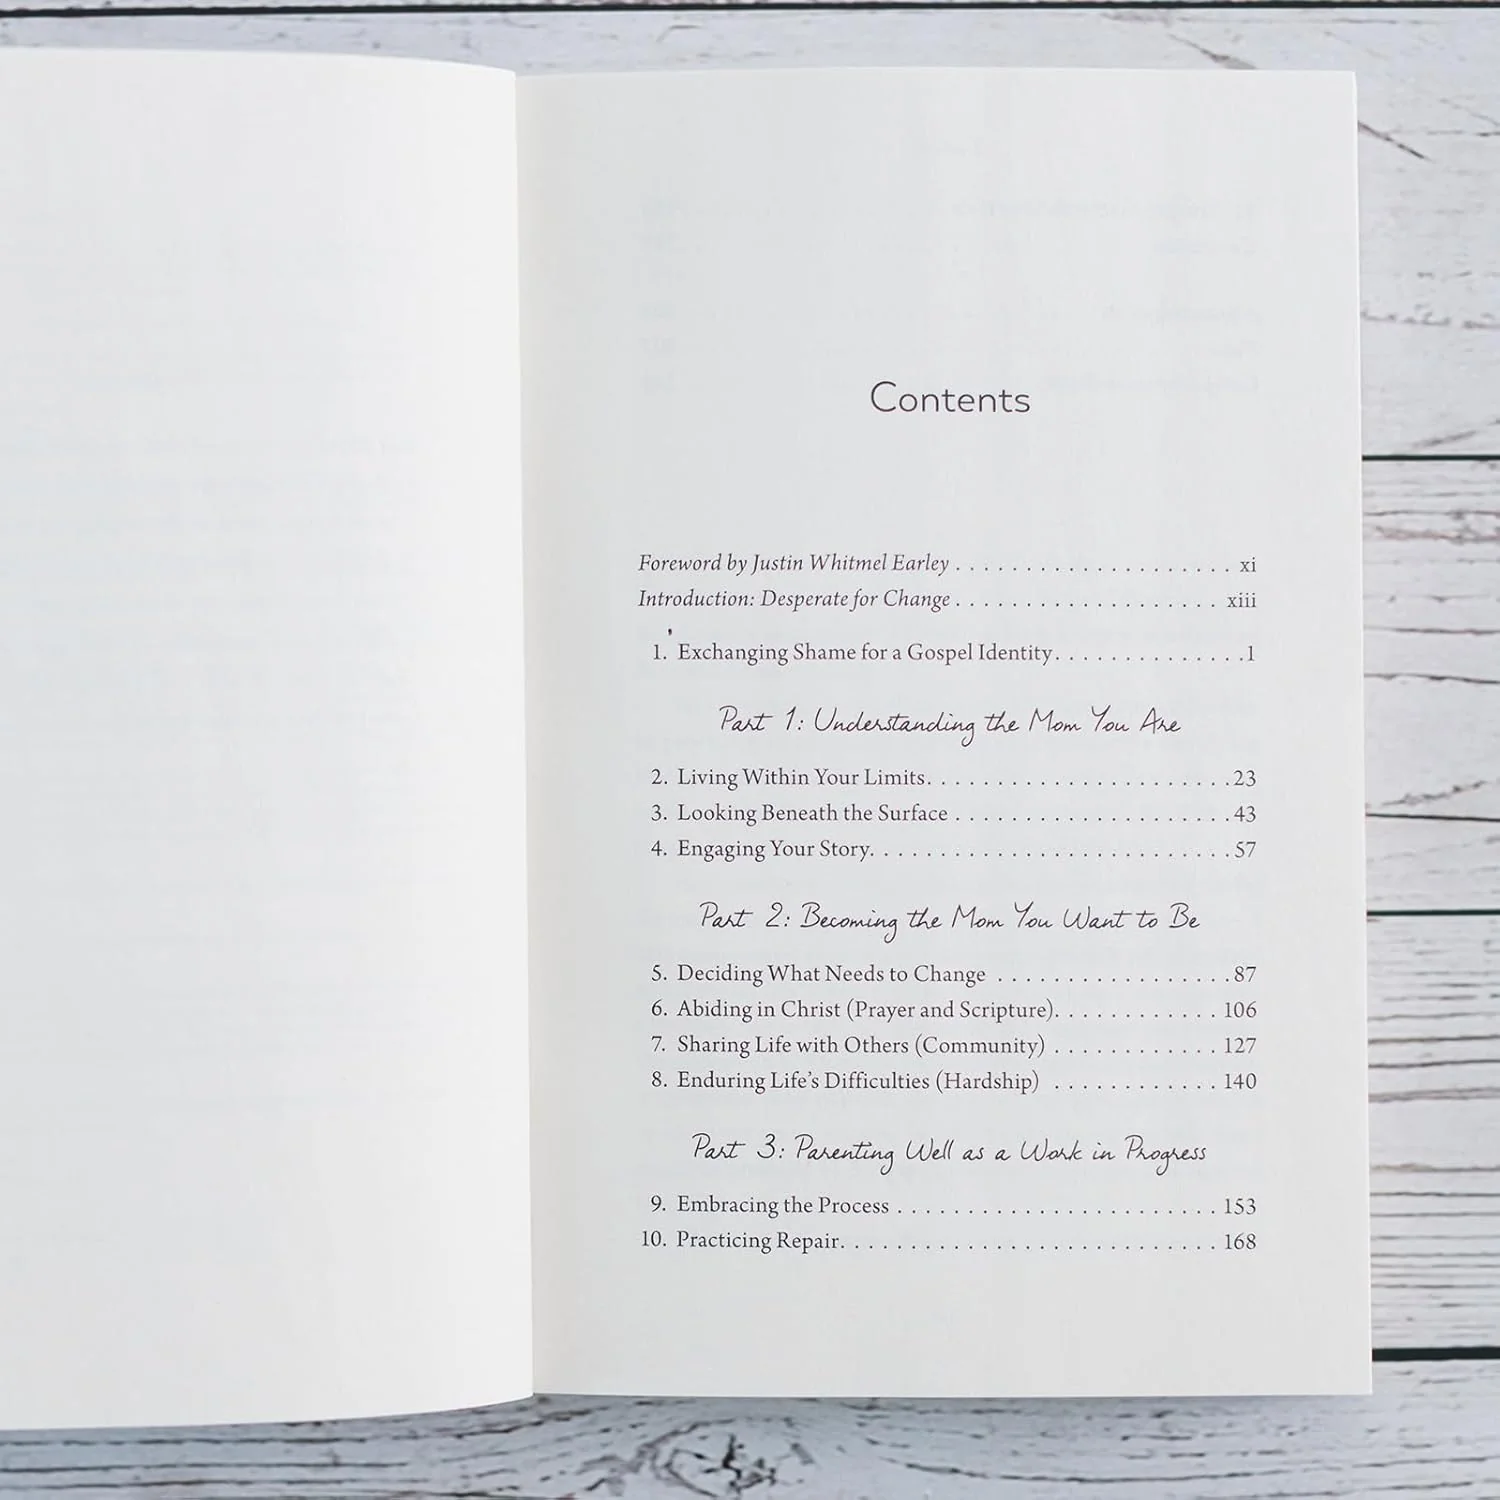 Contents
Foreword by Justin Whitmel Earley . . . . . . . . . . . . . . . . . . . . xi
Introduction: Desperate for Change . . . . . . . . . . . . . . . . . . . xiii
1. Exchanging Shame for a Gospel Identity. . . . . . . . . . . . . .1
Part 1: Understanding the Mom You Are
2. Living Within Your Limits. . . . . . . . . . . . . . . . . . . . . .23
3. Looking Beneath the Surface . . . . . . . . . . . . . . . . . . . .43
4. Engaging Your Story. . . . . . . . . . . . . . . . . . . . . . . . . .57
Part 2: Becoming the Mom You Want to Be
5. Deciding What Needs to Change . . . . . . . . . . . . . . . . .87
6. Abiding in Christ (Prayer and Scripture). . . . . . . . . . . . 106
7. Sharing Life with Others (Community) . . . . . . . . . . . . 127
8. Enduring Life’s Difficulties (Hardship) . . . . . . . . . . . . 140
Part 3: Parenting Well as a Work in Progress
9. Embracing the Process . . . . . . . . . . . . . . . . . . . . . . . 153
10. Practicing Repair. . . . . . . . . . . . . . . . . . . . . . . . . . . 168